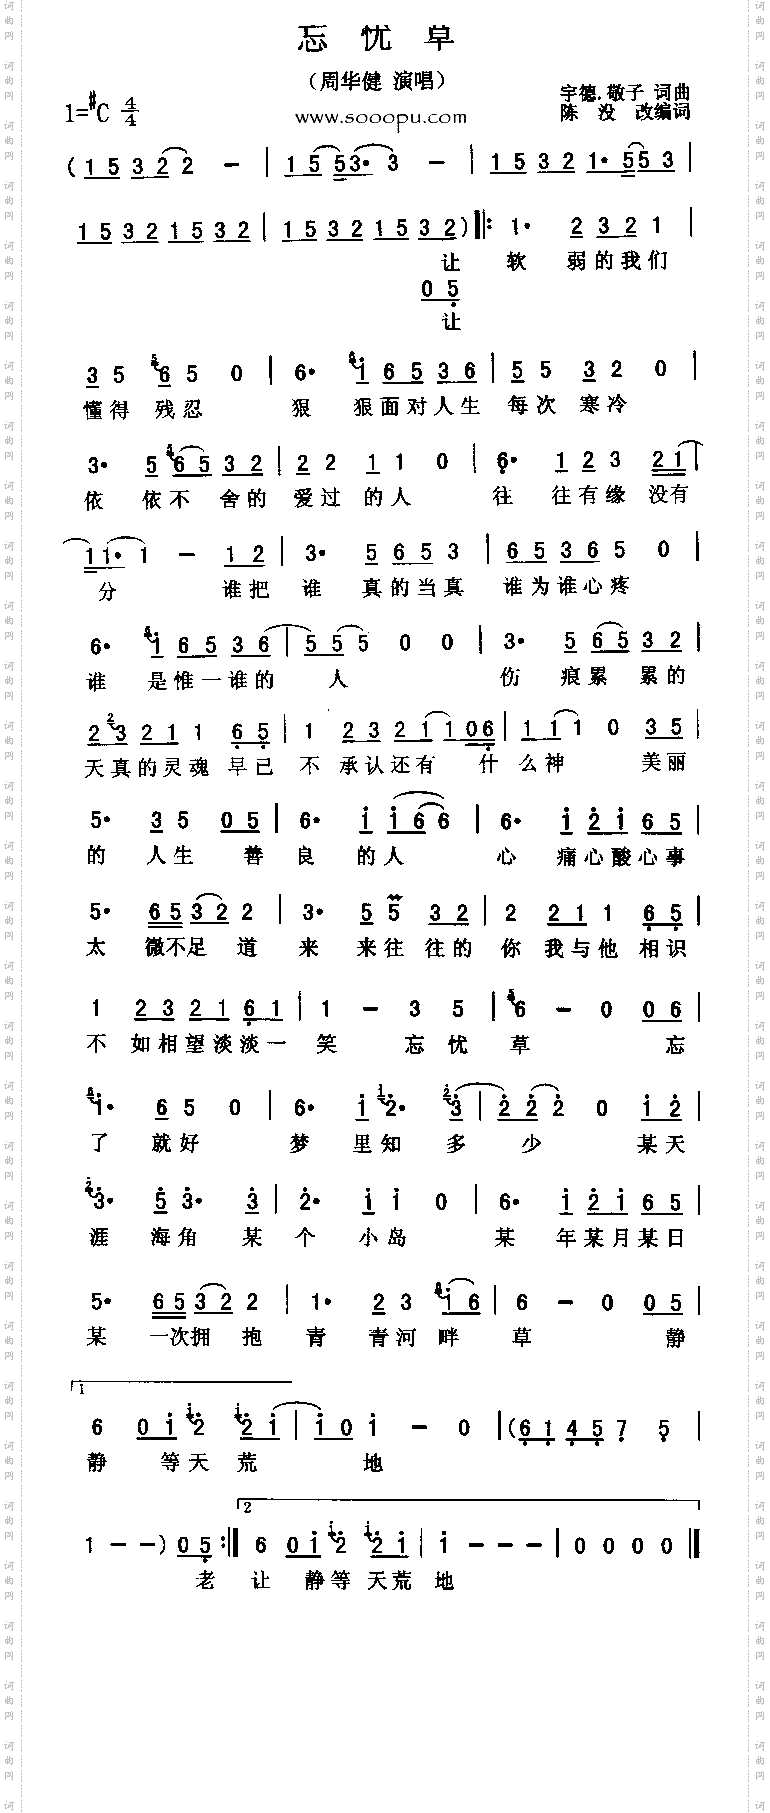 忘忧草
(周华健 演唱)
1=#C 4/4
www.sooopu.com
宇德.敬子 词曲
陈没 改编词
( 1 5 3 2 2 - | 1 5 5 3· 3 - | 1 5 3 2 1· 5 5 3 |
1 5 3 2 1 5 3 2 | 1 5 3 2 1 5 3 2 ) ‖: 1· 2 3 2 1
让 软 弱的我们
0 5
让
3 5 6 5 0 | 6· 1 6 5 3 6 | 5 5 3 2 0 |
懂得 残忍 狠 狠面对人生 每次 寒冷
3· 5 6 5 3 2 | 2 2 1 1 0 | 6· 1 2 3 2 1 |
依 依不 舍的 爱过 的人 往 往有缘 没有
1 1· 1 - 1 2 | 3· 5 6 5 3 | 6 5 3 6 5 0 |
分 谁把 谁 真的当真 谁为谁心疼
6· 1 6 5 3 6 | 5 5 5 0 0 | 3· 5 6 5 3 2 |
谁 是惟一谁的 人 伤 痕累 累的
2 3 2 1 1 6 5 | 1 2 3 2 1 1 0 6 | 1 1 1 0 3 5 |
天真的灵魂 早已 不 承认还有 什么神 美丽
5· 3 5 0 5 | 6· 1 1 6 6 | 6· 1 2 1 6 5 |
的 人生 善 良 的人 心 痛心酸心事
5· 6 5 3 2 2 | 3· 5 5 3 2 | 2 2 1 1 6 5 |
太 微不足 道 来 来往 往的 你 我与他 相识
1 2 3 2 1 6 1 | 1 - 3 5 | 6 - 0 0 6 |
不 如相望淡淡一 笑 忘忧 草 忘
1· 6 5 0 | 6· 1 2· 3 | 2 2 2 0 1 2 |
了 就好 梦 里知 多 少 某天
3· 5 3· 3 | 2· 1 1 0 | 6· 1 2 1 6 5 |
涯 海角 某 个 小岛 某 年某月某日
5· 6 5 3 2 2 | 1· 2 3 1 6 | 6 - 0 0 5 |
某 一次拥 抱 青 青河 畔 草 静
1
6 0 1 2 2 1 | 1 0 1 - 0 | ( 6 1 4 5 7 5 |
静 等天 荒 地
2
1 - - ) 0 5 :‖ 6 0 1 2 2 1 | 1 - - - | 0 0 0 0 ‖
老 让 静等 天荒 地
词曲网